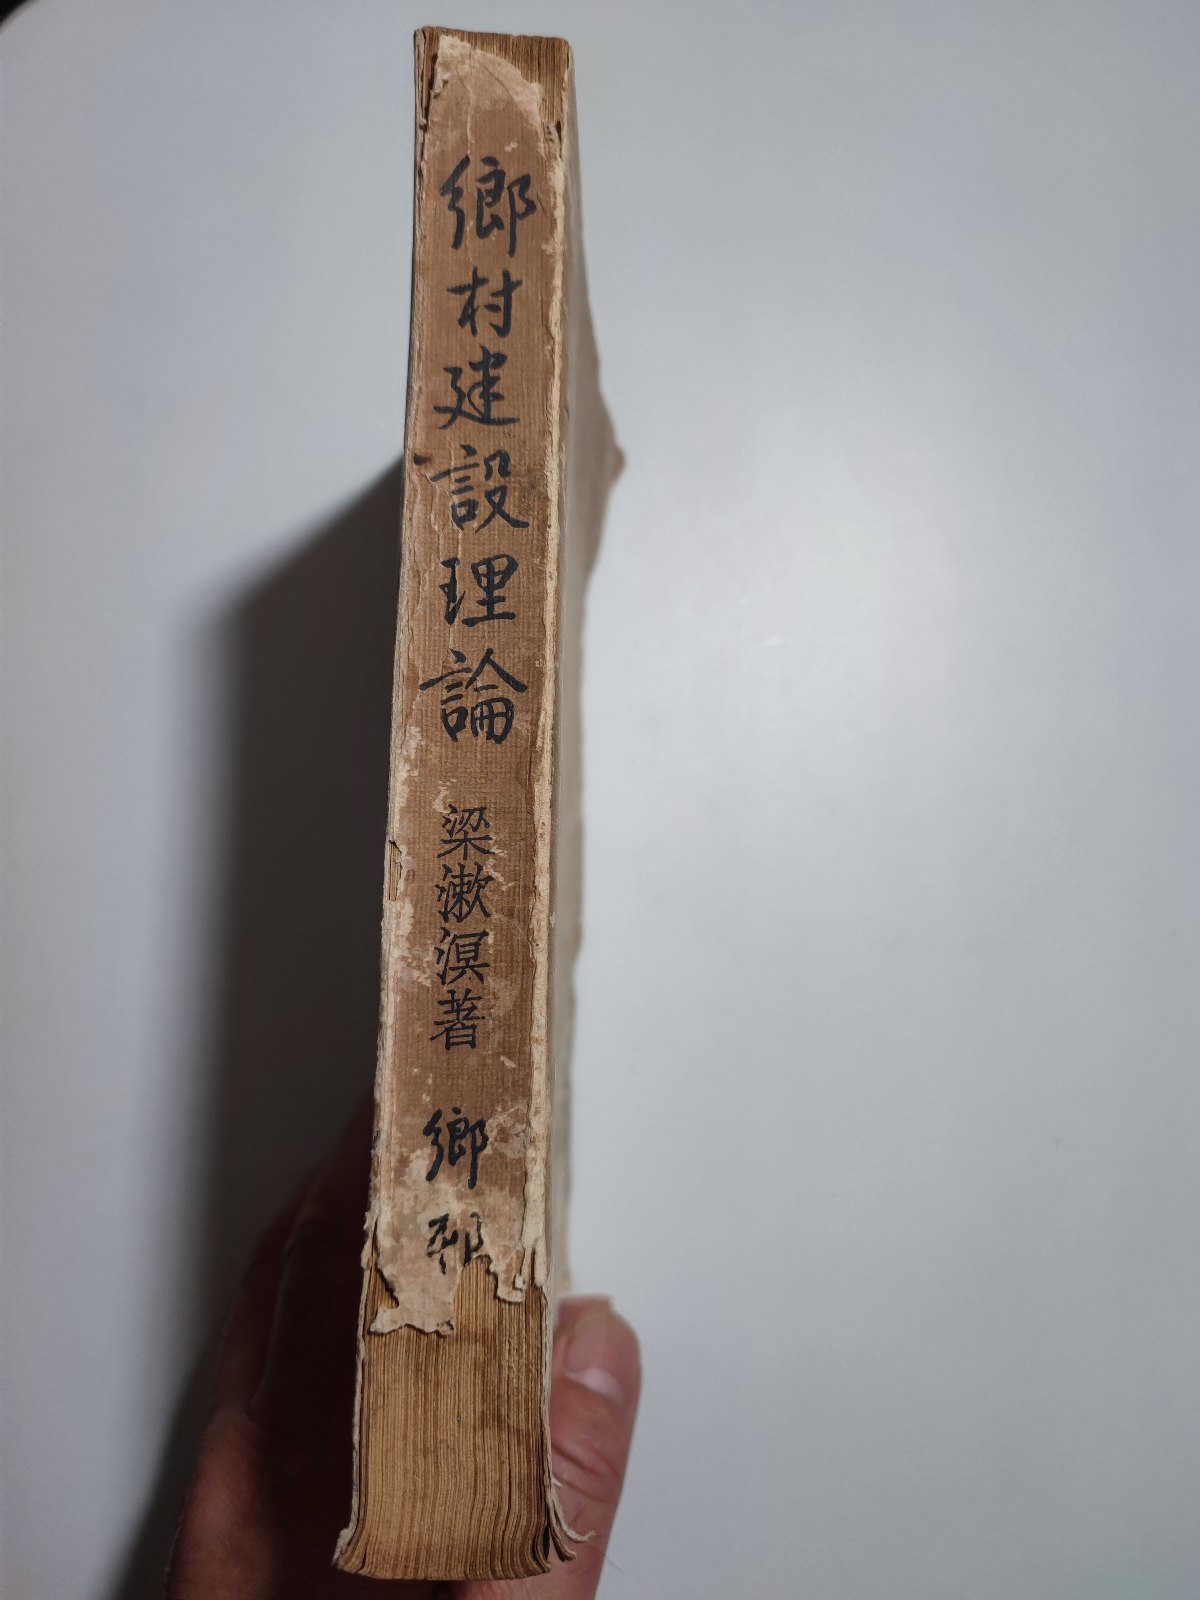 鄉村建設理論
梁漱溟著
鄉邨